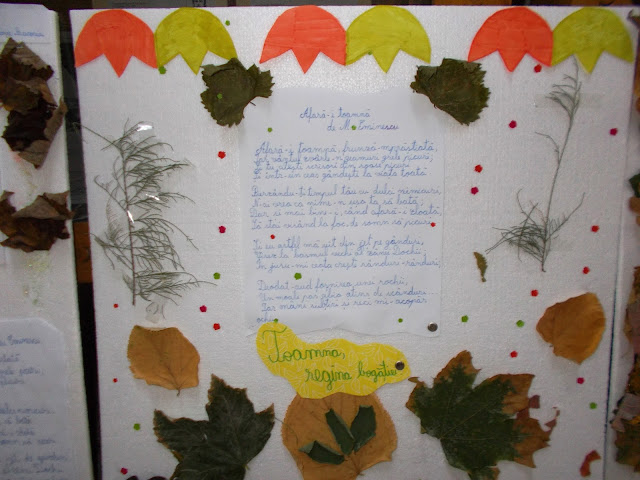 Afară-i toamnă
de M. Eminescu
Afară-i toamnă, frunză-mprăștiată,
Iar vântul zvârle-n geamuri grele picuri;
Și tu citești scrisori din roase plicuri
Și într-un ceas gândești la viața toată
Pierzându-ți timpul tău cu dulci nimicuri,
N-ai vrea ca nime-n ușa ta să bată;
Dar și mai bine-i, când afară-i zloată,
Să stai visând la foc, de somn să picuri.
Și eu astfel mă uit din jeț pe gânduri,
Visez la basmul vechi al zânei Dochii;
În juru-mi ceața crește rânduri-rânduri;
Deodat-aud foșnirea unei rochii,
Un moale pas abia atins de scânduri...
Iar mâni subțiri și reci mi-acopăr
ochii.
Toamna,
regina bogăției